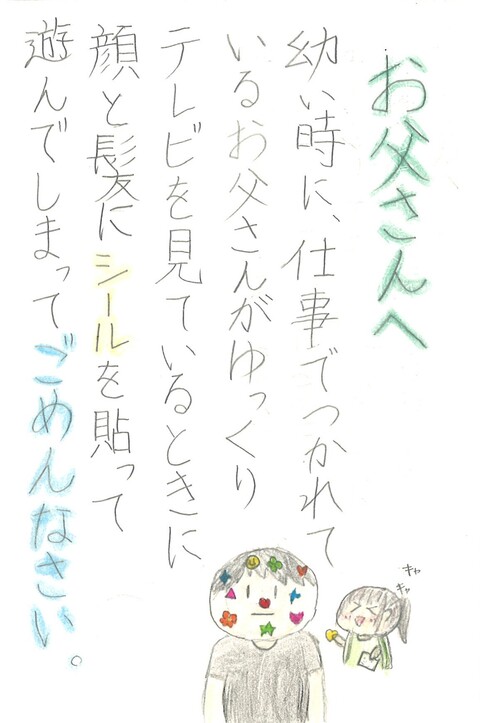 お父さんへ
幼い時に、仕事でつかれて
いるお父さんがゆっくり
テレビを見ているときに
顔と髪にシールを貼って
遊んでしまってごめんなさい。
キャ
キャ